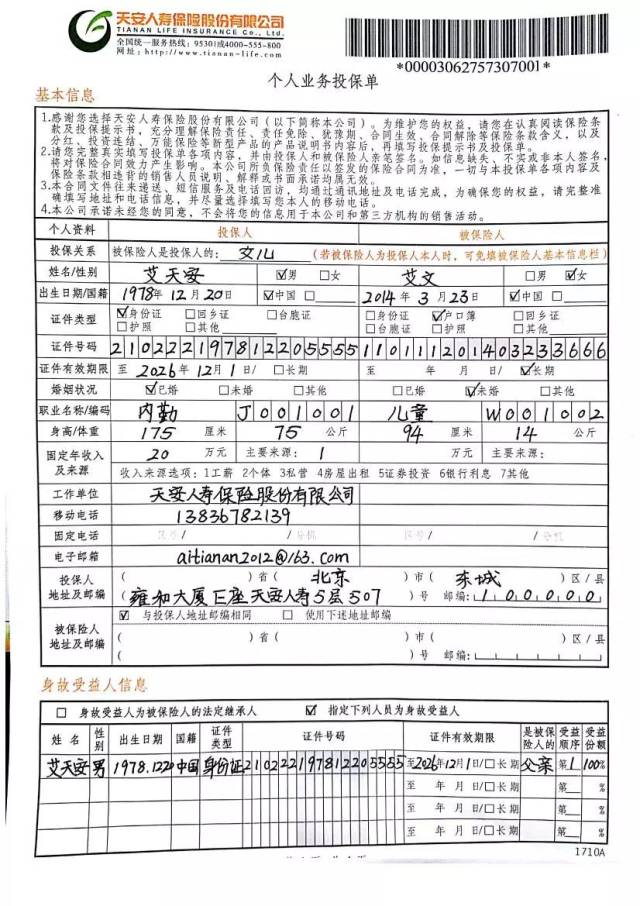 天安人寿保险股份有限公司
TIANAN LIFE INSURANCE Co., Ltd.
全国统一服务热线：95301或4000-555-800
网址：http://www.tianan-life.com
*0000306275730700l*
个人业务投保单
基本信息
1.感谢您选择天安人寿保险股份有限公司（以下简称本公司）。为维护您的权益，请您在认真阅读保险条
款及投保提示书，充分理解保险责任、责任免除、犹豫期、合同生效、合同解除等保险条款含义，以及
分红、投资连结、万能保险等新型产品的产品说明书内容后，再填写投保提示书及投保单。
2.请您完整真实填写投保单各项内容，并由投保人和被保险人亲笔签名。如信息缺失、不实或非本人签名，
将对保险合同效力产生影响。本公司所负保险责任以签发的保险合同为准，一切与本投保单各项内容及
保险条款相违背的销售人员说明、解释或书面承诺均属无效。
3.本合同文件往来递送、短信服务及电话回访，均通过通讯地址及电话完成，为确保您的权益，请完整准
确填写地址和电话信息，并尽量选择填写您本人的移动电话。
4.本公司承诺未经您的同意，不会将您的信息用于本公司和第三方机构的销售活动。
个人资料 投保人 被保险人
投保关系 被保险人是投保人的：女儿 （若被保险人为投保人本人时，可免填被保险人基本信息栏）
姓名/性别 艾天安 ☑男 □女 艾文 □男 ☑女
出生日期/国籍 1978年12月20日 ☑中国 □ 2014年3月23日 ☑中国 □
证件类型 ☑身份证 □回乡证 □台胞证 □身份证 ☑户口簿
□护照 □其他 □台胞证 □护照 □其他
证件号码 210222197812205555 110111201403233666
证件有效期限 至2026年12月1日/□长期 至 年 月 日/☑长期
婚姻状况 ☑已婚 □未婚 □其他 □已婚 ☑未婚 □其他
职业名称/编码 内勤 J001001 儿童 W001002
身高/体重 175 厘米 75 公斤 94 厘米 14 公斤
固定年收入及来源 20 万元 主要来源：1 万元 主要来源：
收入来源选项：1工薪 2个体 3私营 4房屋出租 5证券投资 6银行利息 7其他
工作单位 天安人寿保险股份有限公司
移动电话 13836782139
固定电话 区号/ /分机 区号/ /分机
电子邮箱 aitianan2012@163.com
投保人地址及邮编 （ ）省（北京）市（东城）区/县
（雍和大厦E座天安人寿5层507）号 邮编：100000
被保险人地址及邮编 ☑与投保人地址邮编相同 □使用下述地址邮编
（ ）省（ ）市（ ）区/县
（ ）号 邮编：
身故受益人信息
□ 身故受益人为被保险人的法定继承人 ☑ 指定下列人员为身故受益人
姓名 性别 出生日期 国籍 证件类型 证件号码 证件有效期限 是被保险人的 受益顺序 受益份额
艾天安 男 1978.1220 中国 身份证 210222197812205555 至2026年12月1日/□长期 父亲 第1 100%
至 年 月 日/□长期 第 %
至 年 月 日/□长期 第 %
至 年 月 日/□长期 第 %
1710A